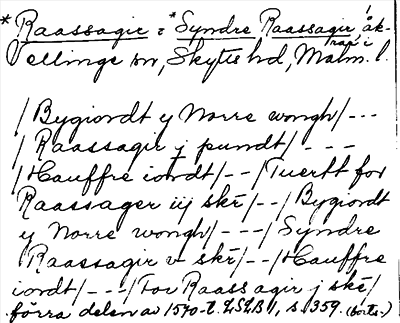 * Raassagir : * Syndre Raassagir, åkrar i
Jellinge sn, Skytts hd, Malm. l.
/Bygiordt y Norre wongh/ ---
/Raassagir j pundt/ - - -
/Hauffre iordt/--/Tuertt for
Raassager iij skē/--/Bygiordt
y Norre wongh/---/Syndre
Raassagir v skē/--/Hauffre
iordt/---/For Raassagir j skē/
förra delen av 1570-t. LSLB 1, s. 359. (forts.)